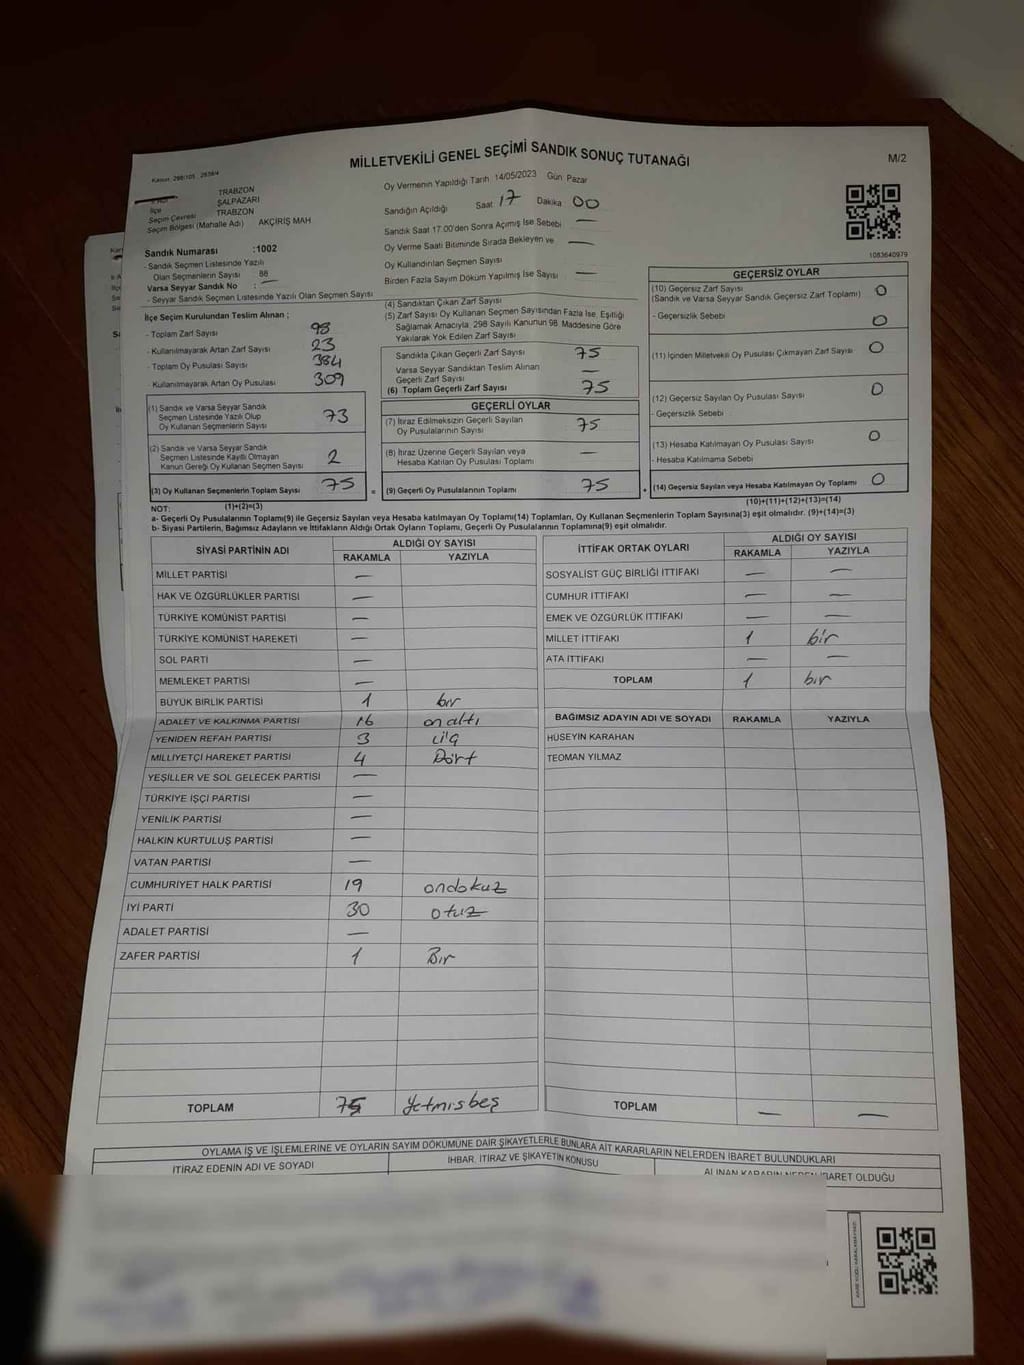 MİLLETVEKİLİ GENEL SEÇİMİ SANDIK SONUÇ TUTANAĞI
M/2
Kanun: 298/105, 2839/4
TRABZON
İlçe ŞALPAZARI
Seçim Çevresi TRABZON
Seçim Bölgesi (Mahalle Adı) AKÇİRİŞ MAH
Sandık Numarası :1002
- Sandık Seçmen Listesinde Yazılı
Olan Seçmenlerin Sayısı 88
Varsa Seyyar Sandık No : —
- Seyyar Sandık Seçmen Listesinde Yazılı Olan Seçmen Sayısı
İlçe Seçim Kurulundan Teslim Alınan ;
- Toplam Zarf Sayısı 98
- Kullanılmayarak Artan Zarf Sayısı 23
- Toplam Oy Pusulası Sayısı 384
- Kullanılmayarak Artan Oy Pusulası 309
(1) Sandık ve Varsa Seyyar Sandık
Seçmen Listesinde Yazılı Olup
Oy Kullanan Seçmenlerin Sayısı 73
(2) Sandık ve Varsa Seyyar Sandık
Seçmen Listesinde Kayıtlı Olmayan
Kanun Gereği Oy Kullanan Seçmen Sayısı 2
(3) Oy Kullanan Seçmenlerin Toplam Sayısı 75 =
(1)+(2)=(3)
Oy Vermenin Yapıldığı Tarih 14/05/2023 Gün Pazar
Sandığın Açıldığı Saat 17 Dakika 00
Sandık Saat 17:00'den Sonra Açılmış İse Sebebi —
Oy Verme Saati Bitiminde Sırada Bekleyen ve —
Oy Kullandırılan Seçmen Sayısı
Birden Fazla Sayım Döküm Yapılmış İse Sayısı —
(4) Sandıktan Çıkan Zarf Sayısı
(5) Zarf Sayısı Oy Kullanan Seçmen Sayısından Fazla İse, Eşitliği
Sağlamak Amacıyla, 298 Sayılı Kanunun 98 Maddesine Göre
Yakılarak Yok Edilen Zarf Sayısı
Sandıkta Çıkan Geçerli Zarf Sayısı 75
Varsa Seyyar Sandıktan Teslim Alınan
Geçerli Zarf Sayısı —
(6) Toplam Geçerli Zarf Sayısı 75
GEÇERLİ OYLAR
(7) İtiraz Edilmeksizin Geçerli Sayılan
Oy Pusulalarının Sayısı 75
(8) İtiraz Üzerine Geçerli Sayılan veya
Hesaba Katılan Oy Pusulası Toplamı —
(9) Geçerli Oy Pusulalarının Toplamı 75 +
1083640979
GEÇERSİZ OYLAR
(10) Geçersiz Zarf Sayısı
(Sandık ve Varsa Seyyar Sandık Geçersiz Zarf Toplamı) 0
- Geçersizlik Sebebi 0
(11) İçinden Milletvekili Oy Pusulası Çıkmayan Zarf Sayısı 0
(12) Geçersiz Sayılan Oy Pusulası Sayısı 0
- Geçersizlik Sebebi
(13) Hesaba Katılmayan Oy Pusulası Sayısı 0
- Hesaba Katılmama Sebebi
(14) Geçersiz Sayılan veya Hesaba Katılmayan Oy Toplamı 0
(10)+(11)+(12)+(13)=(14)
NOT:
a- Geçerli Oy Pusulalarının Toplamı(9) ile Geçersiz Sayılan veya Hesaba katılmayan Oy Toplamı(14) Toplamları, Oy Kullanan Seçmenlerin Toplam Sayısına(3) eşit olmalıdır. (9)+(14)=(3)
b- Siyasi Partilerin, Bağımsız Adayların ve İttifakların Aldığı Ortak Oyların Toplamı, Geçerli Oy Pusulalarının Toplamına(9) eşit olmalıdır.
SİYASİ PARTİNİN ADI ALDIĞI OY SAYISI
RAKAMLA YAZIYLA
MİLLET PARTİSİ —
HAK VE ÖZGÜRLÜKLER PARTİSİ —
TÜRKİYE KOMÜNİST PARTİSİ —
TÜRKİYE KOMÜNİST HAREKETİ —
SOL PARTİ —
MEMLEKET PARTİSİ —
BÜYÜK BİRLİK PARTİSİ 1 bir
ADALET VE KALKINMA PARTİSİ 16 onaltı
YENİDEN REFAH PARTİSİ 3 üç
MİLLİYETÇİ HAREKET PARTİSİ 4 Dört
YEŞİLLER VE SOL GELECEK PARTİSİ —
TÜRKİYE İŞÇİ PARTİSİ —
YENİLİK PARTİSİ —
HALKIN KURTULUŞ PARTİSİ —
VATAN PARTİSİ —
CUMHURİYET HALK PARTİSİ 19 ondokuz
İYİ PARTİ 30 otuz
ADALET PARTİSİ —
ZAFER PARTİSİ 1 Bir
TOPLAM 75 Yetmişbeş
İTTİFAK ORTAK OYLARI ALDIĞI OY SAYISI
RAKAMLA YAZIYLA
SOSYALİST GÜÇ BİRLİĞİ İTTİFAKI — —
CUMHUR İTTİFAKI — —
EMEK VE ÖZGÜRLÜK İTTİFAKI — —
MİLLET İTTİFAKI 1 bir
ATA İTTİFAKI — —
TOPLAM 1 bir
BAĞIMSIZ ADAYIN ADI VE SOYADI RAKAMLA YAZIYLA
HÜSEYİN KARAHAN
TEOMAN YILMAZ
TOPLAM — —
OYLAMA İŞ VE İŞLEMLERİNE VE OYLARIN SAYIM DÖKÜMÜNE DAİR ŞİKAYETLERLE BUNLARA AİT KARARLARIN NELERDEN İBARET BULUNDUKLARI
İTİRAZ EDENİN ADI VE SOYADI İHBAR, İTİRAZ VE ŞİKAYETİN KONUSU ALINAN KARARIN NEDEN İBARET OLDUĞU